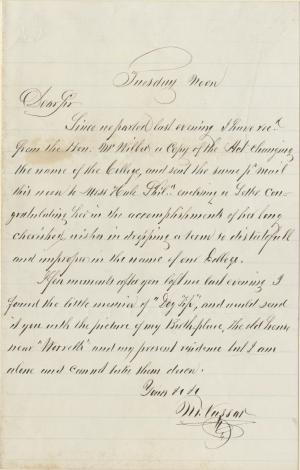 Tuesday Noon
Dear Sir
Since we parted last evening I have rec.d
from the Hon. Mr Wilbor a Copy of the Act changing
the name of the College, and sent the same pr mail
this noon to Miss Hale Phil.a enclosing a Letter con-
gratulating her in the accomplishments of her long
cherished wishes in dropping a term so distastefull
and improper in the name of our College.
A few moments after you left me last evening I
found the little memoir of and would send
it you with the picture of my Birthplace, the old House
near and my present residence but I am
alone and cannot take them down.
Yours &c &c
M. Vassar